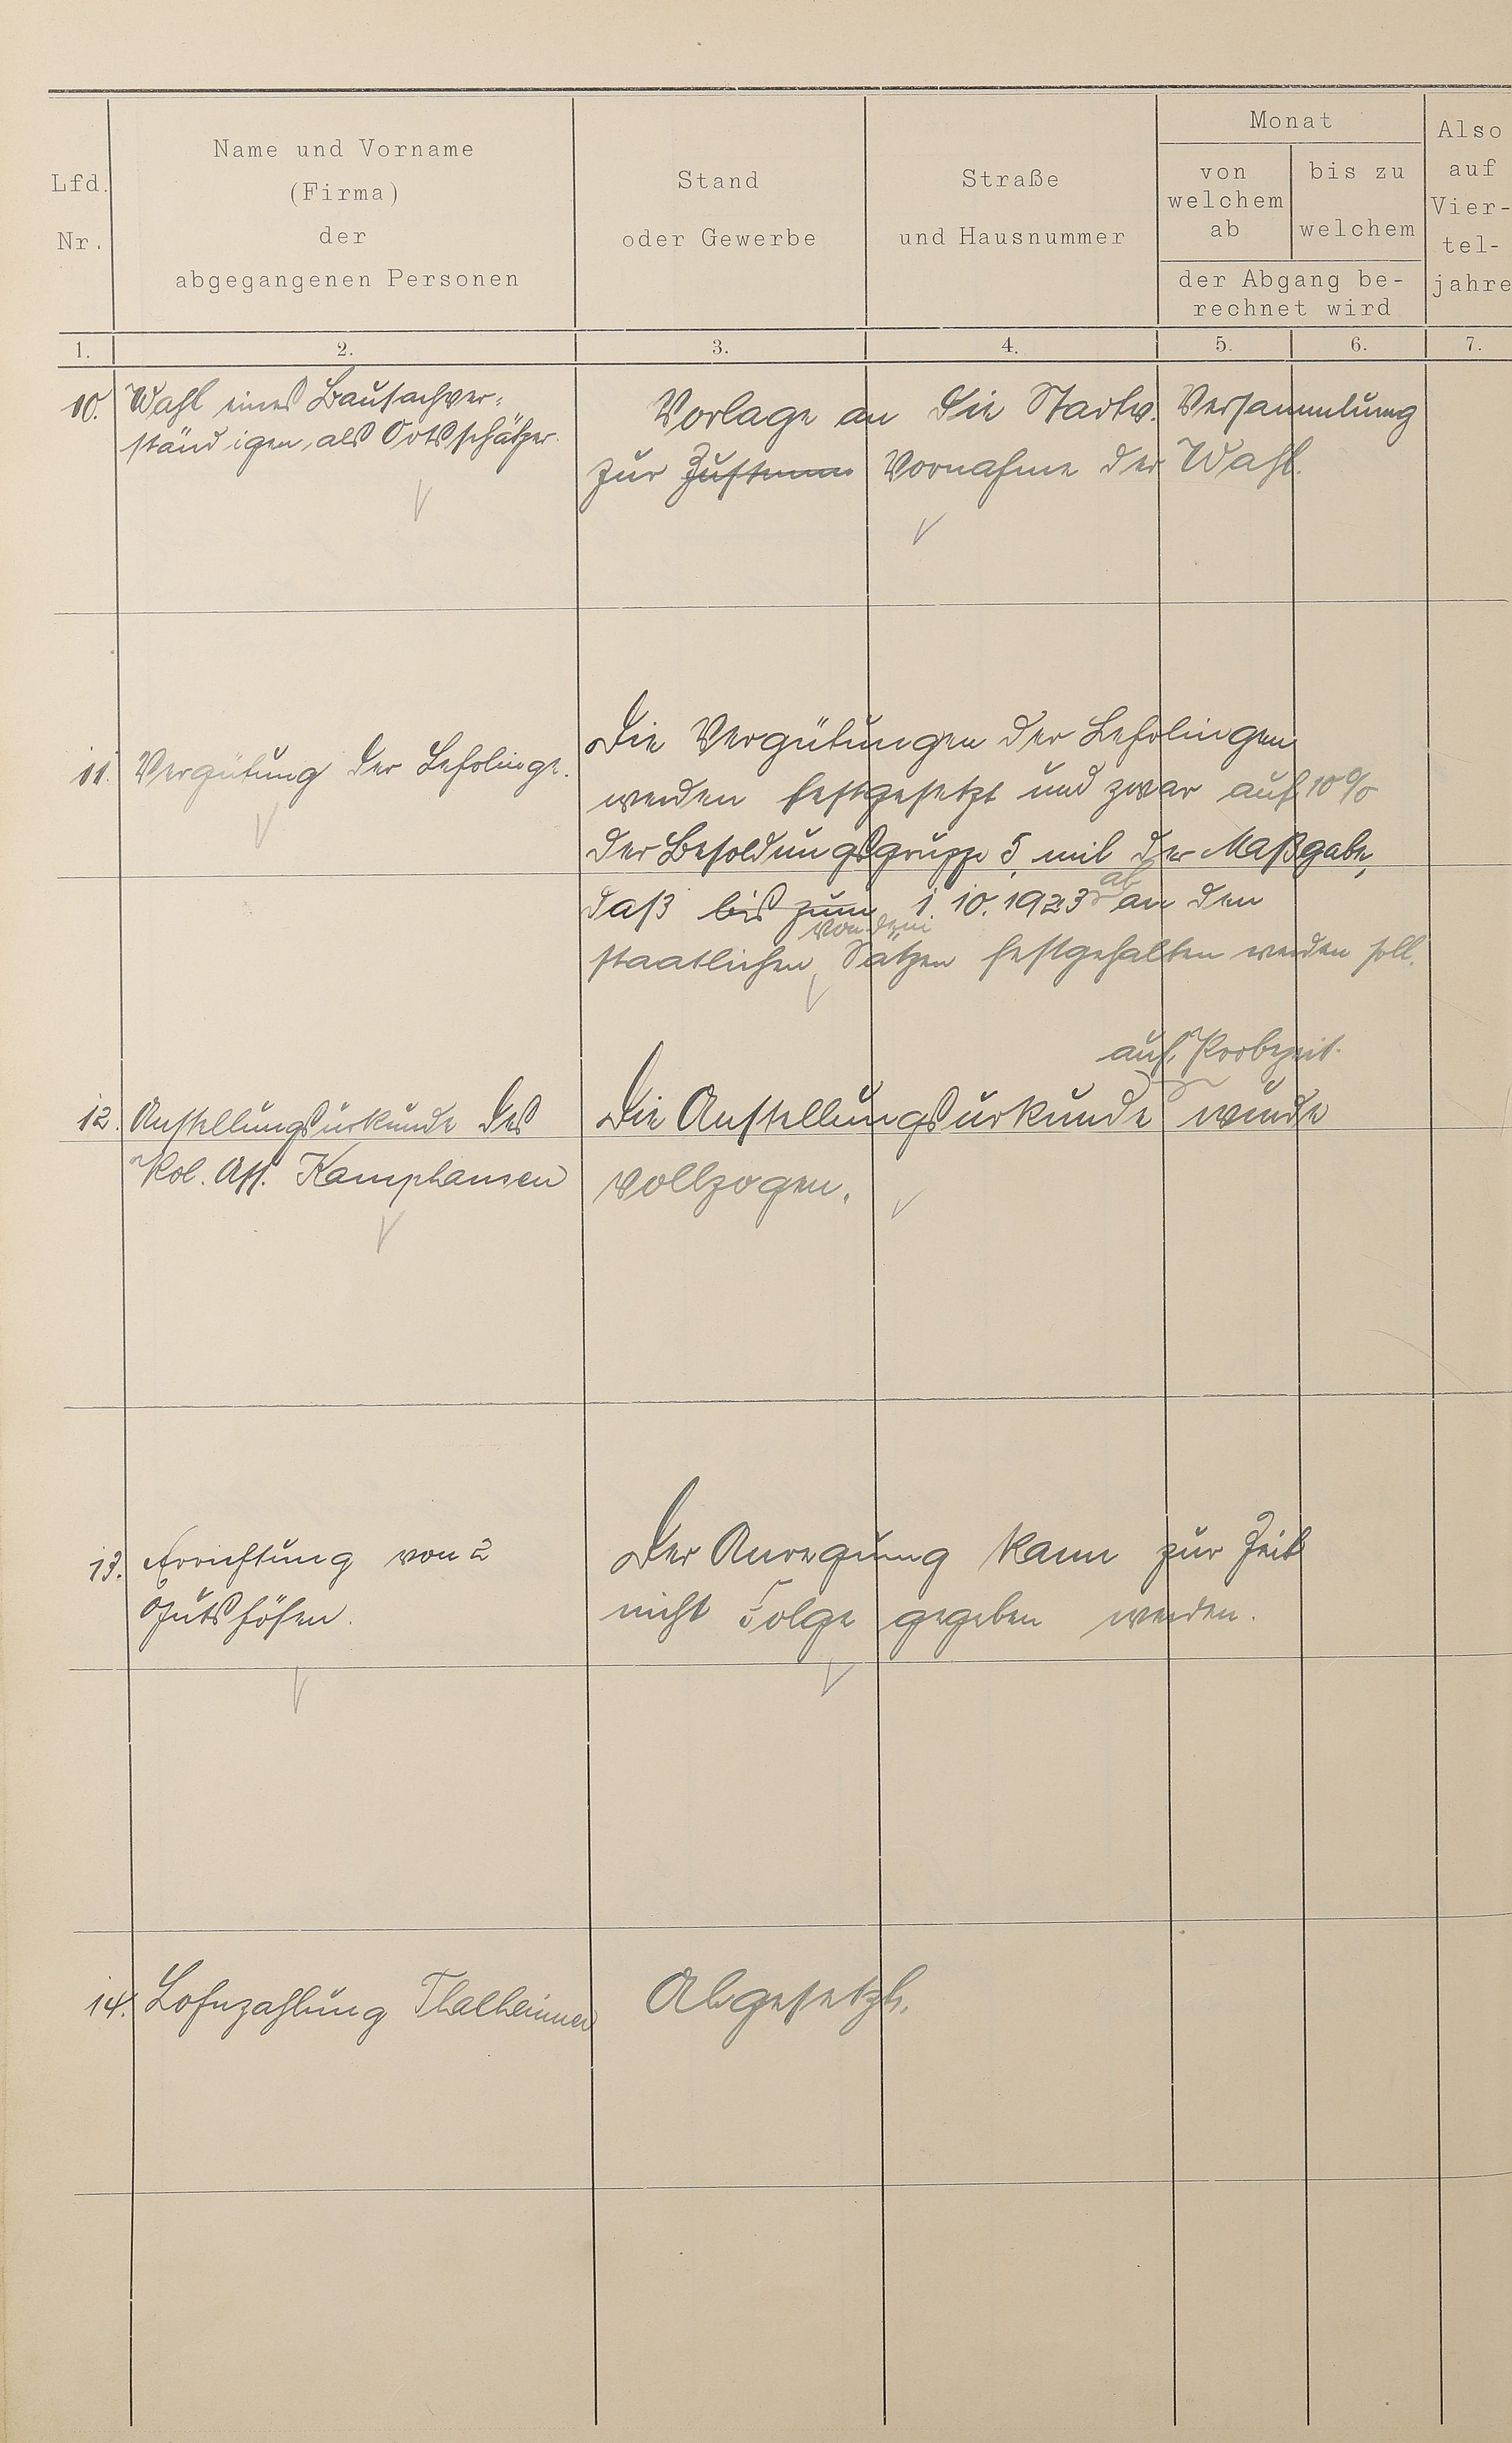 Lfd.
Nr.
Name und Vorname
(Firma)
der
abgegangenen Personen
Stand
oder Gewerbe
Straße
und Hausnummer
Monat
von
welchem
ab
bis zu
welchem
der Abgang be-
rechnet wird
Also
auf
Vier-
tel-
jahre
1. 2. 3. 4. 5. 6. 7.
10. Wahl eines Bausachver-
ständigen, als Ortsschätzer.
Vorlage an die Stadtv. Versammlung
zur Zustimm Vornahme der Wahl.
11. Vergütung der Lehrlinge.
Die Vergütungen der Lehrlingen
werden festgesetzt und zwar auf 10%
der Besoldungsgruppe 5, mit der Maßgabe,
daß bis zum 1. 10. 1923 ab an den
von dem
staatlichen Sätzen festgehalten werden soll.
auf Probezeit.
12. Anstellungsurkunde des
Pol. Ass. Kamphausen
Die Anstellungsurkunde wurde
vollzogen.
13. Errichtung von 2
Gutshöfen.
Der Anregung kann zur Zeit
nicht Folge gegeben werden.
14. Lohnzahlung Thalheimer
Abgesetzt.